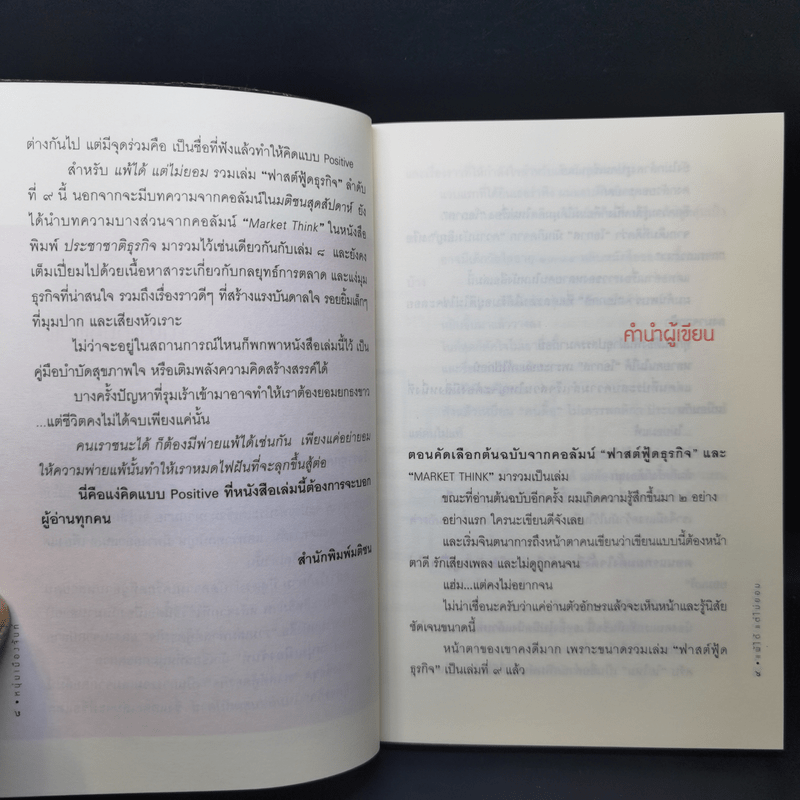 ต่างกันไป แต่มีจุดร่วมคือ เป็นชื่อที่ฟังแล้วทำให้คิดแบบ Positive
สำหรับ แพ้ได้ แต่ไม่ยอม รวมเล่ม “ฟาสต์ฟู้ดธุรกิจ” ลำดับ
ที่ ๙ นี้ นอกจากจะมีบทความจากคอลัมน์ในมติชนสุดสัปดาห์ ยัง
ได้นำบทความบางส่วนจากคอลัมน์ “Market Think” ในหนังสือ
พิมพ์ ประชาชาติธุรกิจ มารวมไว้เช่นเดียวกันกับเล่ม ๘ และยังคง
เต็มเปี่ยมไปด้วยเนื้อหาสาระเกี่ยวกับกลยุทธ์การตลาด และแง่มุม
ธุรกิจที่น่าสนใจ รวมถึงเรื่องราวดีๆ ที่สร้างแรงบันดาลใจ รอยยิ้มเล็กๆ
ที่มุมปาก และเสียงหัวเราะ
ไม่ว่าจะอยู่ในสถานการณ์ไหนก็พกพาหนังสือเล่มนี้ไว้ เป็น
คู่มือบำบัดสุขภาพใจ หรือเติมพลังความคิดสร้างสรรค์ได้
บางครั้งปัญหาที่รุมเร้าเข้ามาอาจทำให้เราต้องยอมยกธงขาว
...แต่ชีวิตคงไม่ได้จบเพียงแค่นั้น
คนเราชนะได้ ก็ต้องมีพ่ายแพ้ได้เช่นกัน เพียงแค่อย่ายอม
ให้ความพ่ายแพ้นั้นทำให้เราหมดไฟฝันที่จะลุกขึ้นสู้ต่อ
นี่คือแง่คิดแบบ Positive ที่หนังสือเล่มนี้ต้องการจะบอก
ผู้อ่านทุกคน
สำนักพิมพ์มติชน
๘ • หนุ่มเมืองจันท์
คำนำผู้เขียน
ตอนคัดเลือกต้นฉบับจากคอลัมน์ “ฟาสต์ฟู้ดธุรกิจ” และ
“MARKET THINK” มารวมเป็นเล่ม
ขณะที่อ่านต้นฉบับอีกครั้ง ผมเกิดความรู้สึกขึ้นมา ๒ อย่าง
อย่างแรก ใครนะเขียนดีจังเลย
และเริ่มจินตนาการถึงหน้าตาคนเขียนว่าเขียนแบบนี้ต้องหน้า
ตาดี รักเสียงเพลง และไม่ดูถูกคนจน
แฮ่ม...แต่คงไม่อยากจน
ไม่น่าเชื่อนะครับว่าแค่อ่านตัวอักษรแล้วจะเห็นหน้าและรู้นิสัย
ชัดเจนขนาดนี้
หน้าตาของเขาคงดีมาก เพราะขนาดรวมเล่ม “ฟาสต์ฟู้ด
ธุรกิจ” เป็นเล่มที่ ๙ แล้ว
๙ • แพ้ได้ แต่ไม่ยอม